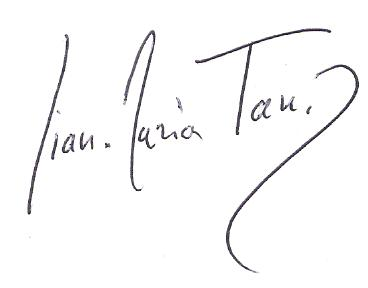 Gian. Maria Tan.